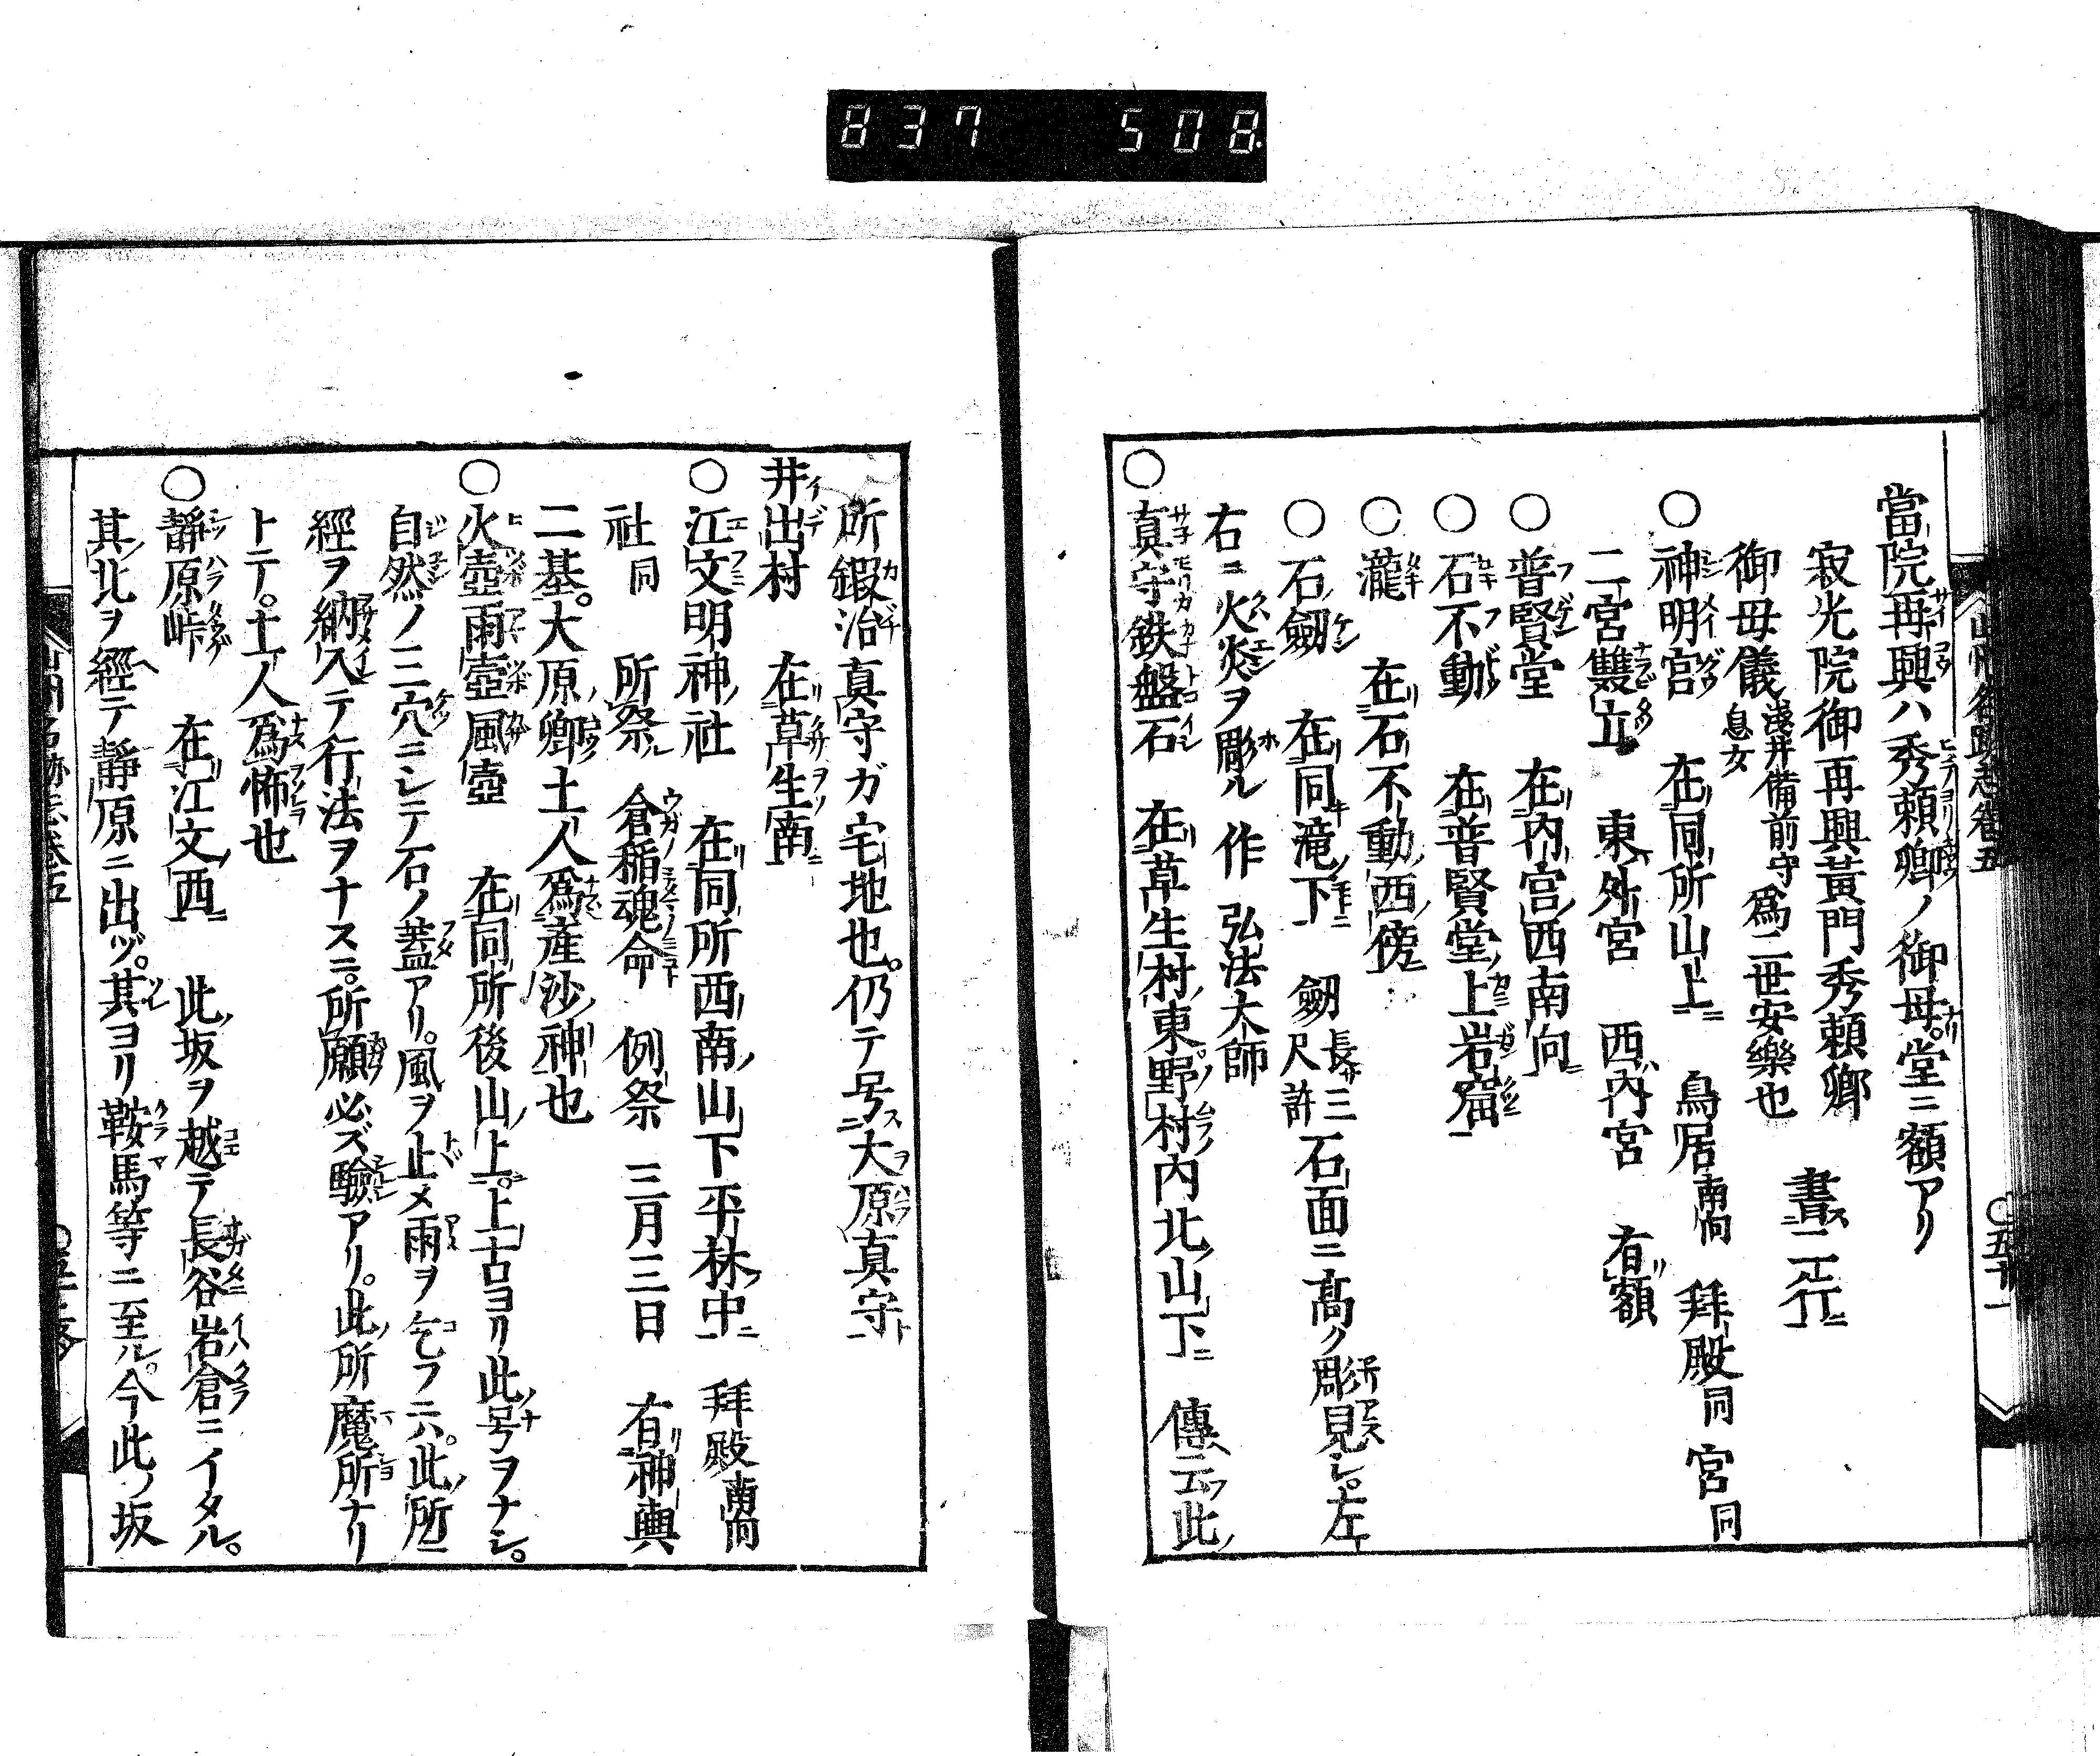 837 508
當院再興ハ秀頼卿ノ御母。堂ニ額アリ
寂光院御再興黄門秀頼卿 書二行
御母儀淺井備前守息女爲二世安樂也
○神明宮 在同所山上 鳥居南向 拜殿同 宮同
二宮雙立 東外宮 西内宮 有額
○普賢堂 在内宮西南向
○石不動 在普賢堂上岩窟
○瀧 在石不動西傍
○石劔 在同滝下 劔長サ三尺許石面ニ髙ク彫見シ。左
右ニ火炎ヲ彫ル 作 弘法大師
○真守鉄盤石 在草生村東野村内北山下 傳云此
所鍜治真守ガ宅地也。仍テ号大原真守
井出村 在草生南
○江文明神社 在同所西南山下平林中 拜殿南向
社同 所祭 倉稲魂命 例祭 三月三日 有神輿
二基。大原郷土人爲產沙神也
○火壺雨壺風壺 在同所後山上。上古ヨリ此号ヲナシ。
自然ノ三穴ニシテ石ノ蓋アリ。風ヲ止メ雨ヲ乞フニハ。此所
經ヲ納入テ行法ヲナスニ。所願必ズ驗アリ。此所魔所ナリ
トテ。土人爲怖也
○靜原峠 在江文西 此坂ヲ越テ長谷岩倉ニイタル。
其北ヲ經テ靜原ニ出ヅ。其ヨリ鞍馬等ニ至ル。今此ノ坂